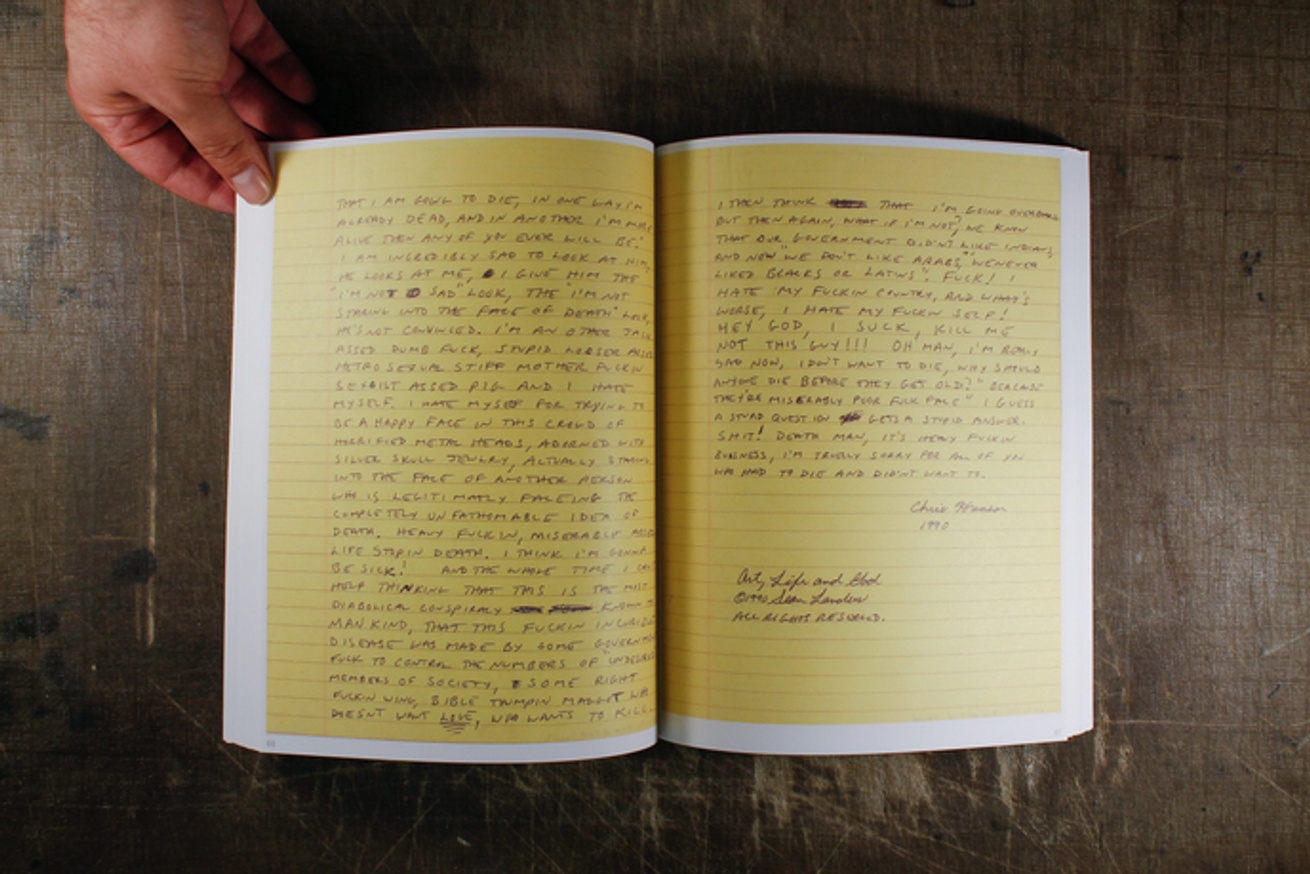 THAT I AM GOING TO DIE, IN ONE WAY I'M
ALREADY DEAD, AND IN ANOTHER I'M MORE
ALIVE THEN ANY OF YOU EVER WILL BE."
I AM INCREDIBLY SAD TO LOOK AT HIM
HE LOOKS AT ME, I GIVE HIM THE
"I'M NOT SAD" LOOK, THE "I'M NOT
STARING INTO THE FACE OF DEATH" LOOK,
HE'S NOT CONVINCED. I'M AN OTHER
ASSED DUMB FUCK, STUPID LOOSER ASSED
HETRO SEXUAL STIFF MOTHER FUCKIN
SEXIST ASSED PIG AND I HATE
MYSELF. I HATE MYSELF FOR TRYING TO
BE A HAPPY FACE IN THIS CROWD OF
HORRIFIED METAL HEADS, ADORNED WITH
SILVER SKULL JEWLRY, ACTUALLY STARING
INTO THE FACE OF ANOTHER PERSON
WHO IS LEGITIMATLY FACEING THE
COMPLETELY UNFATHOMABLE IDEA OF
DEATH. HEAVY FUCKIN, MISERABLE ASSED
LIFE STOPIN DEATH. I THINK I'M GONNA
BE SICK! AND THE WHOLE TIME I
HELP THINKING THAT THIS IS THE MOST
DIABOLICAL CONSPIRACY KNOWN TO
MAN KIND, THAT THIS FUCKIN
DISEASE WAS MADE BY SOME GOVERNMENT
FUCK TO CONTROL THE NUMBERS OF "UNDESIRED
MEMBERS OF SOCIETY, SOME RIGHT
FUCKIN WING, BIBLE THUMPIN MAGGOT WHO
DOESN'T WANT LOVE, WHO WANTS TO KILL.
68
I THEN THINK THAT I'M GOING OVERBOARD
BUT THEN AGAIN, WHAT IF I'M NOT? WE KNOW
THAT OUR GOVERNMENT DIDN'T LIKE INDIANS,
AND NOW "WE DON'T LIKE ARABS," "WENEVER
LIKED BLACKS OR LATINS". FUCK! I
HATE MY FUCKIN COUNTRY, AND WHAT'S
WORSE, I HATE MY FUCKIN SELF!
HEY GOD, I SUCK, KILL ME
NOT THIS GUY!!! OH MAN, I'M REALLY
SAD NOW, I DON'T WANT TO DIE, WHY SHOULD
ANYONE DIE BEFORE THEY GET OLD? "BECAUSE
THEY'RE MISERABLY POOR FUCK FACE" I GUESS
A STUPID QUESTION GETS A STUPID ANSWER.
SHIT! DEATH MAN, IT'S HEAVY FUCKIN
BUSNESS, I'M TRUELLY SORRY FOR ALL OF YOU
WHO HAD TO DIE AND DIDN'T WANT TO.
Chris
1990
Art, Life and God
©1990 Sean Landers
ALL RIGHTS RESERVED.